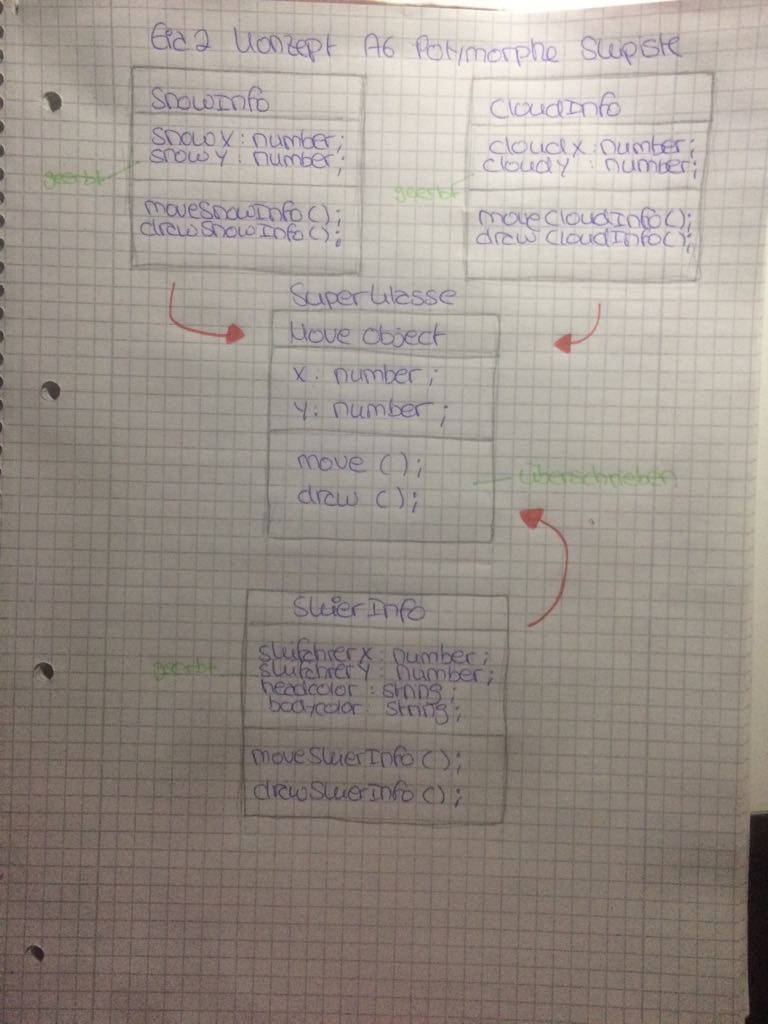 Eia 2 Konzept A6 Polymorphe Skipiste
SnowInfo
snowX : number;
snowY : number;
geerbt
moveSnowInfo ();
drawSnowInfo ();
CloudInfo
cloudX : number;
cloudY : number;
geerbt
moveCloudInfo ();
drawCloudInfo ();
SuperKlasse
Move Object
x : number;
y : number;
move ();
draw ();
überschrieben
SkierInfo
skifahrerX : number;
skifahrerY : number;
geerbt
headcolor : string;
bodycolor : string;
moveSkierInfo ();
drawSkierInfo ();